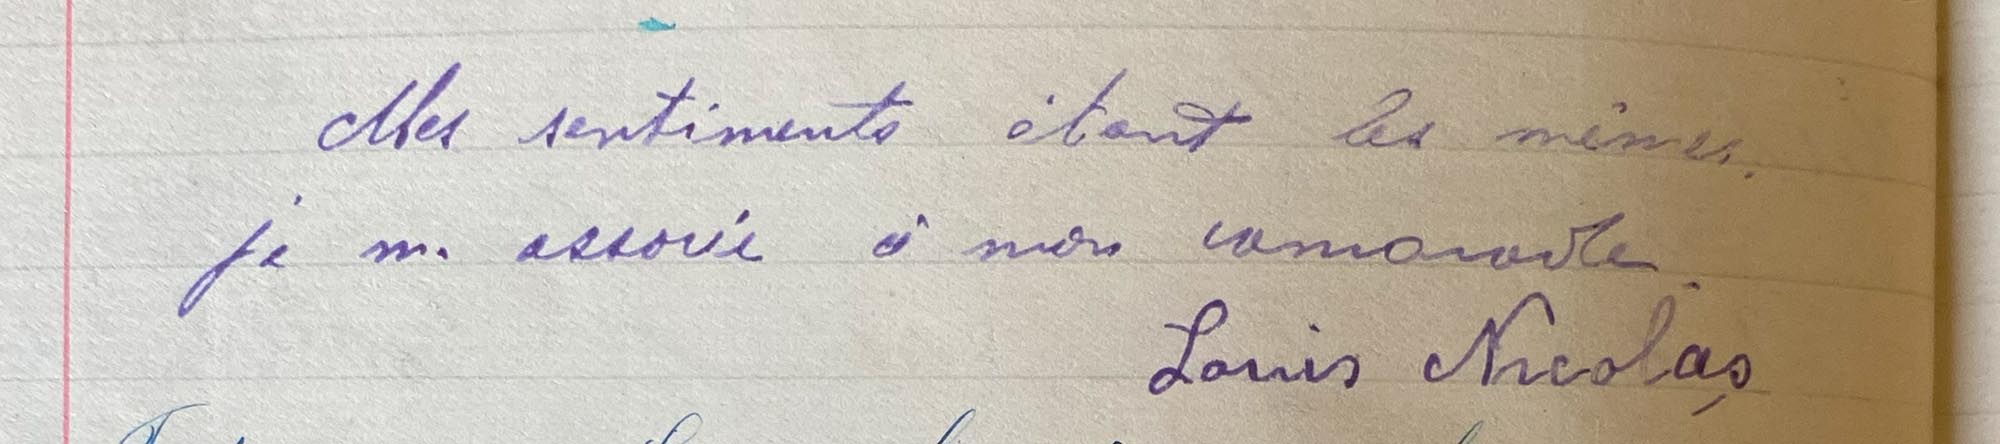 Mes sentiments étant les mêmes,
je m. associe à mon camarade.
Louis Nicolas